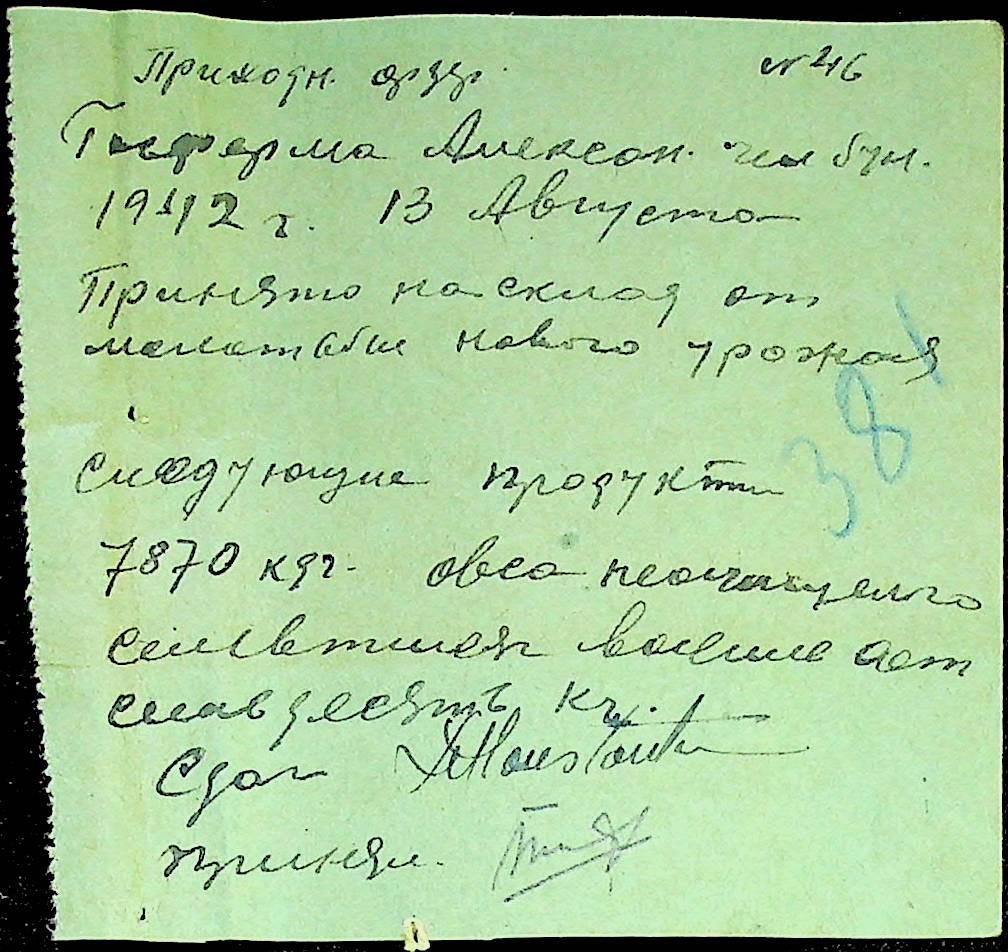 Приходн. ордер. № 46
Госферма Алексан.
1942 г. 13 Августа
Принято на склад от
молотьбы нового урожая
381
следующие продукты
7870 кгг. овса неочищеного
семь тисяч восемсот
семдесять кг.
Сдал
принял.